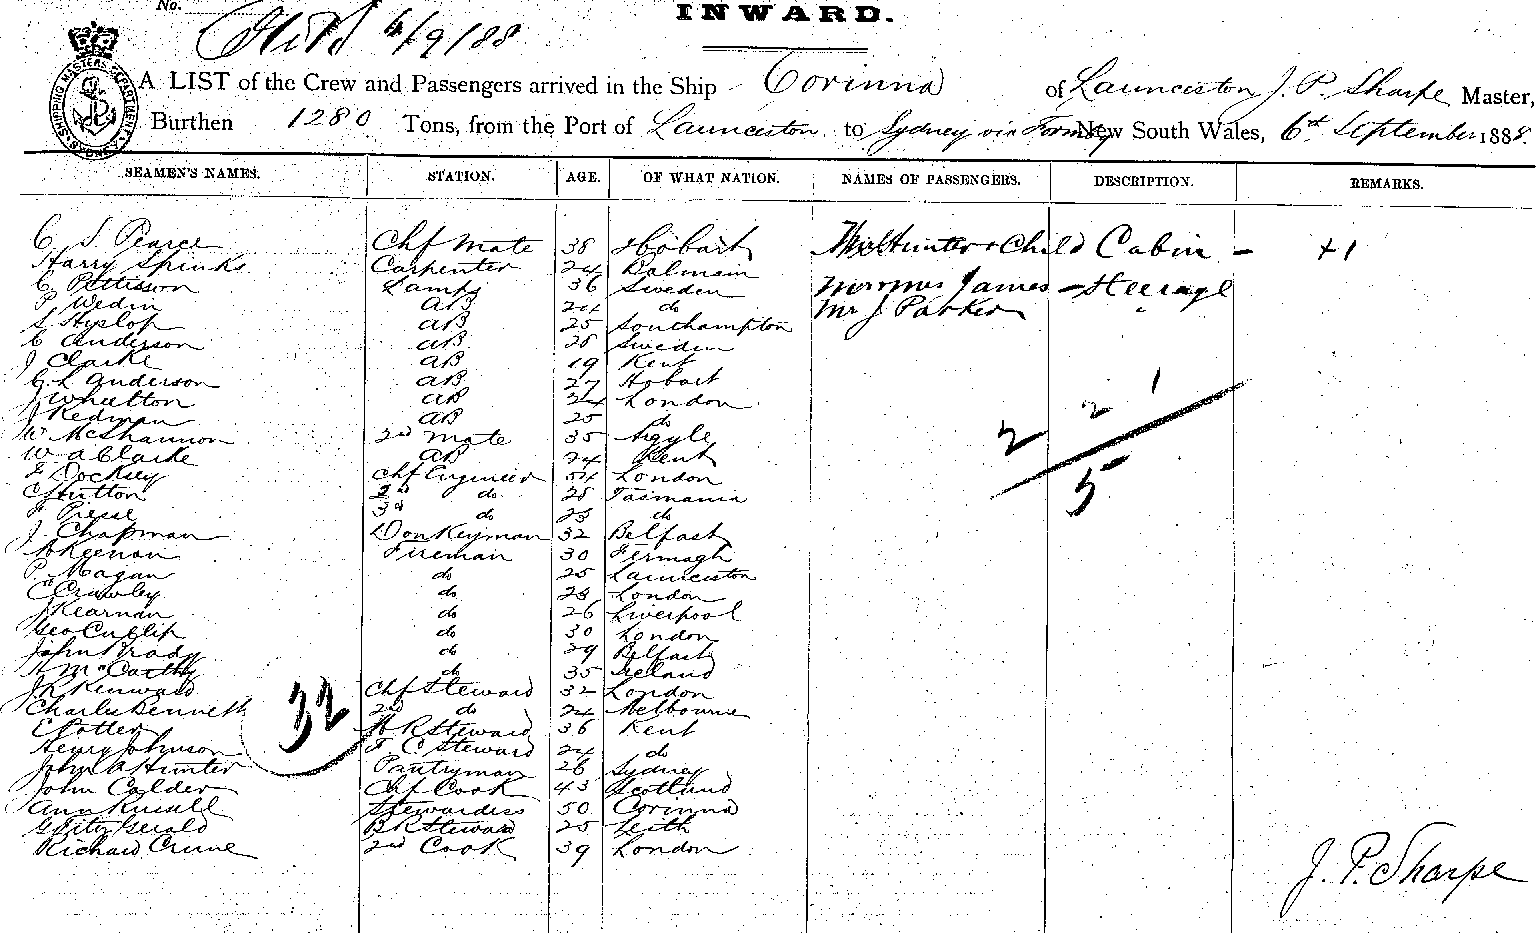 No.
INWARD.
6/9/88
A LIST of the Crew and Passengers arrived in the Ship Corinna of Launceston J. P. Sharpe Master,
Burthen 1280 Tons, from the Port of Launceston to Sydney via Formby New South Wales, 6th September 1888.
SEAMEN'S NAMES. STATION. AGE. OF WHAT NATION. NAMES OF PASSENGERS. DESCRIPTION. REMARKS.
C. S. Pearce Chf Mate 38 Hobart Mrs Hunter + Child Cabin - +1
Harry Spinks Carpenter 24 Balmain
C Pettisson Lamps 36 Sweden Mr James - Steerage
P Wedin AB 24 do Mr J. Parker "
S Hyslop AB 25 Southampton
C Anderson AB 28 Sweden
J Clarke AB 19 Kent
C. L Anderson AB 27 Hobart
J Wheetton AB 24 London
J Redman AB 25 do
W McShannon 2nd Mate 35 Argyle
W A Clarke AB 24 Kent
Docksey Chf Engineer 54 London
C Hutton 2nd do 28 Tasmania
F Piesse 3rd do 23 do
J. Chapman Donkeyman 32 Belfast
Keenan Fireman 30 Fermagh
P. Magan do 25 Launceston
C Crawley do 28 London
J Kearnan do 26 Liverpool
Geo Cutlip do 30 London
John Brady do 29 Belfast
H McCarthy do 35 Ireland
J R Kenward Chf Steward 32 London
Charles Bennett 2nd do 24 Melbourne
E Potter Steward 36 Kent
Henry Johnson F. C Steward 24 do
John A Hunter Pantryman 26 Sydney
John Calder Chf Cook 43 Scotland
Ann Russell Stewardess 50 Corinna
G Fitzgerald B R Steward 25 Leith
Richard Crune 2nd Cook 39 London
32
2 2 1
5
J. P. Sharpe